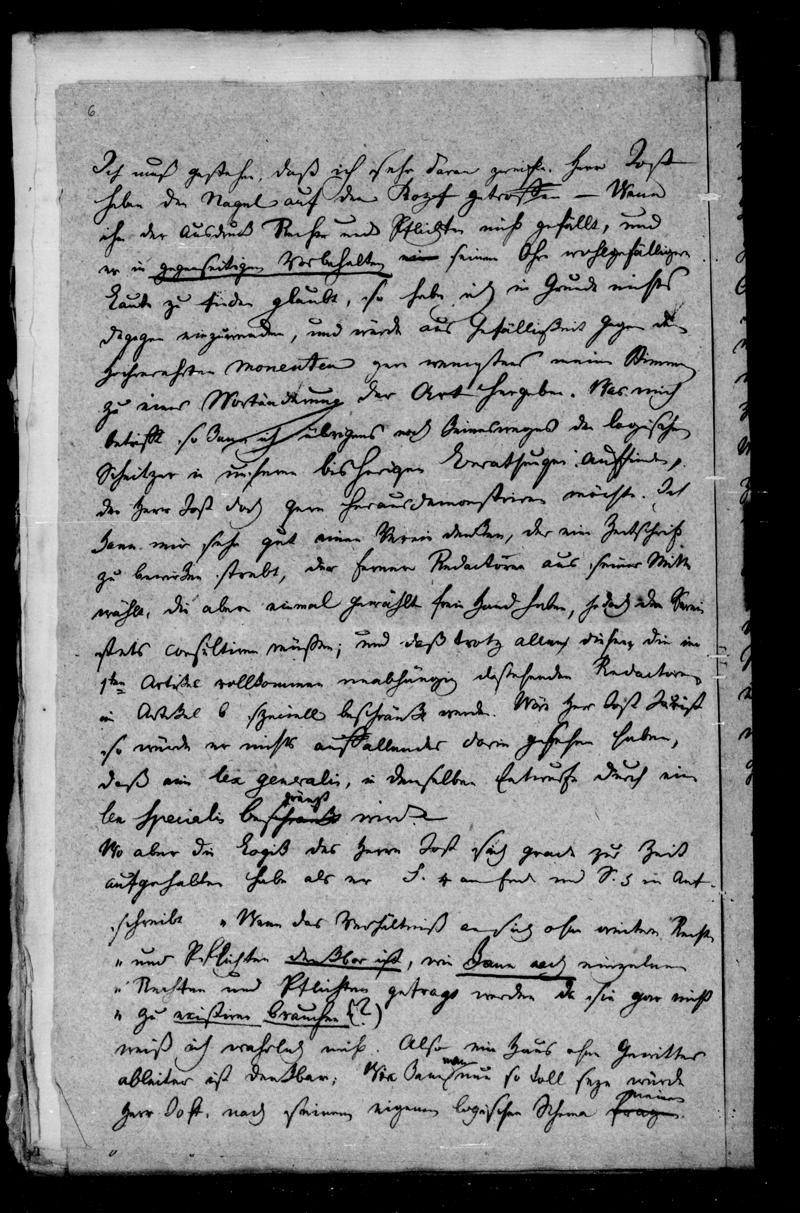 6
Ich muß gestehn, daß ich sehr daran zweifle. Herr Jost
habe den Nagel auf den Kopf getroffen — Wenn
ihm der Ausdruck Rechte und Pflichten nicht gefällt, und
er in gegenseitigen Vorbehalten seinem Ohr wohlgefälligere
Laute zu finden glaubt, so habe ich im Grunde nichts
dagegen einzuwenden, und würde aus Gefälligkeit gegen den
Hochverehrten Monenten gern wenigstens meine Stimme
zu einer Wortänderung der Art hergeben. Was mich
betrifft so kann ich übrigens noch keineswegs den logischen
Schnitzer in unseren bisherigen Berathungen auffinden,
den Herr Jost doch gern herausdemonstriren möchte. Ich
kann mir sehr gut einen Verein denken, der eine Zeitschrift
zu bewirken strebt, der ferner Redactöre aus seiner Mitte
wählt, die aber einmal gewählt freie Hand haben, jedoch den Verein
stets consultiren müssen; und daß trotz allem diesem die im
1ten Artikel vollkommen unabhängig dastehenden Redactoren
in Artikel 6 speciell beschränkt werden. Wäre Herr Jost Jurist
so würde er nichts auffallendes darin gesehen haben,
daß ein lex generalis, in demselben Entwurfe durch ein
lex specialis beschränkt wird. —
Wo aber die Logik des Herrn Jost sich grade zur Zeit
aufgehalten habe als er S. 4 am Ende und S. 5 im Anf.
schreibt „Wenn das Verhältniß an sich ohne weitere Rechte
„ und Pflichten denkbar ist, wie kann nach einzelnen
„ Rechten und Pflichten gefragt werden da sie gar nicht
„ zu existiren brauchen (?)
weiß ich wahrlich nicht. Also ein Haus ohne Gewitter
ableiter ist denkbar; Wie kann man nun so toll seyn würde
Herr Jost, nach seinem eigenen logischen Schema meinen